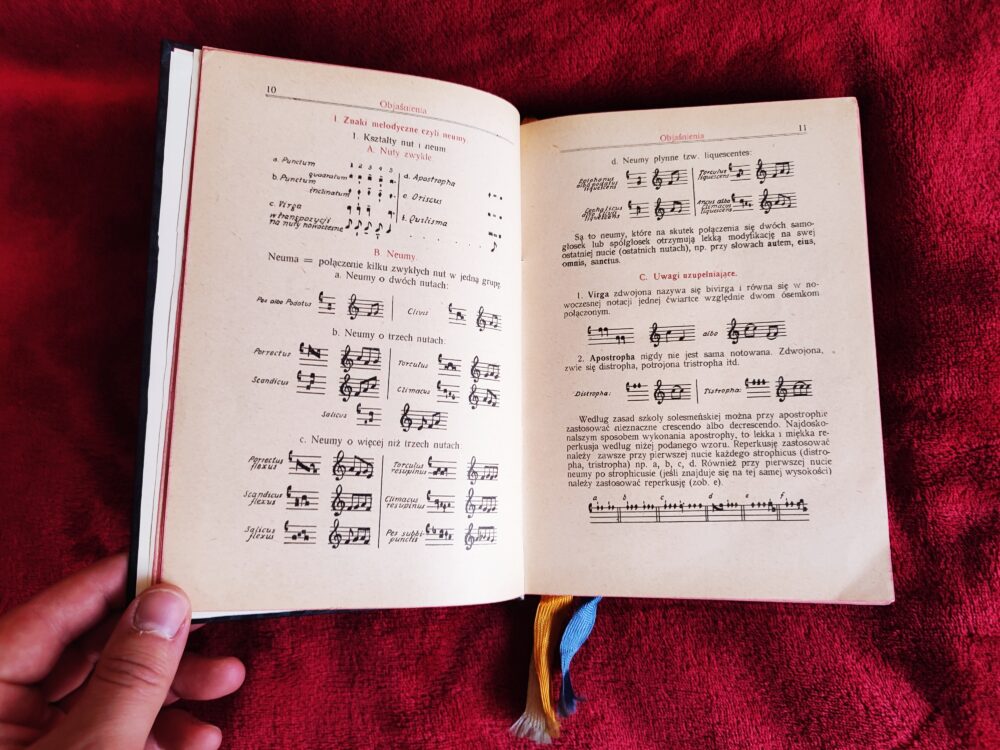 10
Objaśnienia
I. Znaki melodyczne czyli neumy.
1. Kształty nut i neum
A. Nuty zwykłe
1 2 3 4 5
a. Punctum
quadratum
b. Punctum
inclinatum
c. Virga
w transpozycji
na nuty nowoczesne
d. Apostropha
e. Oriscus
f. Quilisma
B. Neumy.
Neuma = połączenie kilku zwykłych nut w jedną grupę
a. Neumy o dwóch nutach:
Pes albo Podatus
Clivis
b. Neumy o trzech nutach:
Porrectus
Torculus
Scandicus
Climacus
Salicus
c. Neumy o więcej niż trzech nutach
Porrectus
flexus
Torculus
resupinus
Scandicus
flexus
Climacus
resupinus
Salicus
flexus
Pes subbi-
punctis
Objaśnienia
11
d. Neumy płynne tzw. liquescentes:
Epiphonus
albo podatus
liquescens
Torculus
liquescens
Cephalicus
albo clivis
liquescens
Ancus albo
Climacus
liquescens
Są to neumy, które na skutek połączenia się dwóch samo-
głosek lub spółgłosek otrzymują lekką modyfikację na swej
ostatniej nucie (ostatnich nutach), np. przy słowach autem, eius,
omnis, sanctus.
C. Uwagi uzupełniające.
1. Virga zdwojona nazywa się bivirga i równa się w no-
woczesnej notacji jednej ćwiartce względnie dwom ósemkom
połączonym.
albo
2. Apostropha nigdy nie jest sama notowana. Zdwojona,
zwie się distropha, potrojona tristropha itd.
Distropha:
Tistropha:
Według zasad szkoły solesmeńskiej można przy apostrophie
zastosować nieznaczne crescendo albo decrescendo. Najdosko-
nalszym sposobem wykonania apostrophy, to lekka i miękka re-
perkusja według niżej podanego wzoru. Reperkusję zastosować
należy zawsze przy pierwszej nucie każdego strophicus (distro-
pha, tristropha) np. a, b, c, d. Również przy pierwszej nucie
neumy po strophicusie (jeśli znajduje się na tej samej wysokości)
należy zastosować reperkusję (zob. e).
a b c d e f